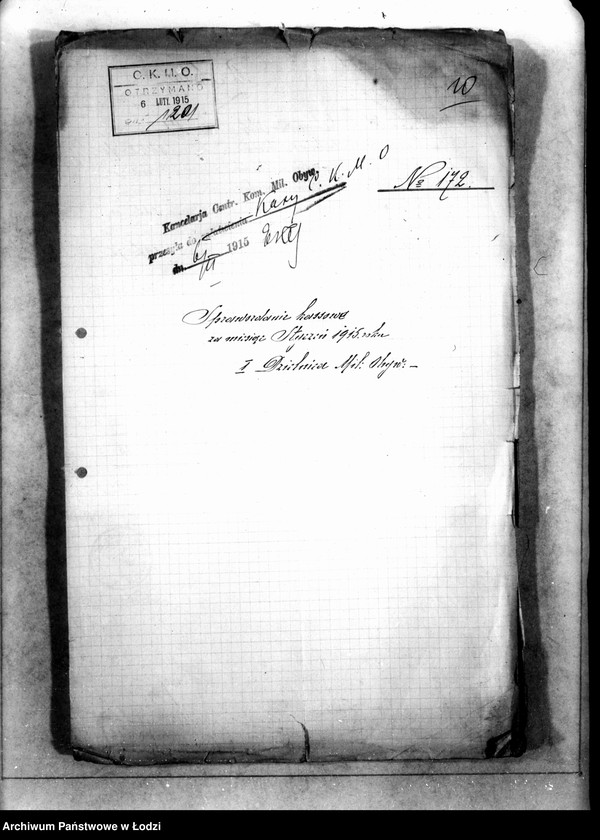 C. K. M. O.
OTRZYMANO
6 LUT. 1915
1201
10
Kancelarja Centr. Kom. Mil. Obyw.
przesyła do Kasy C. K. M. O
dn. 6/II 1915
№ 172.
Sprawozdanie kassowe
za miesiąc Styczeń 1915 roku
I Dzielnica Mil. Obyw. –
Archiwum Państwowe w Łodzi